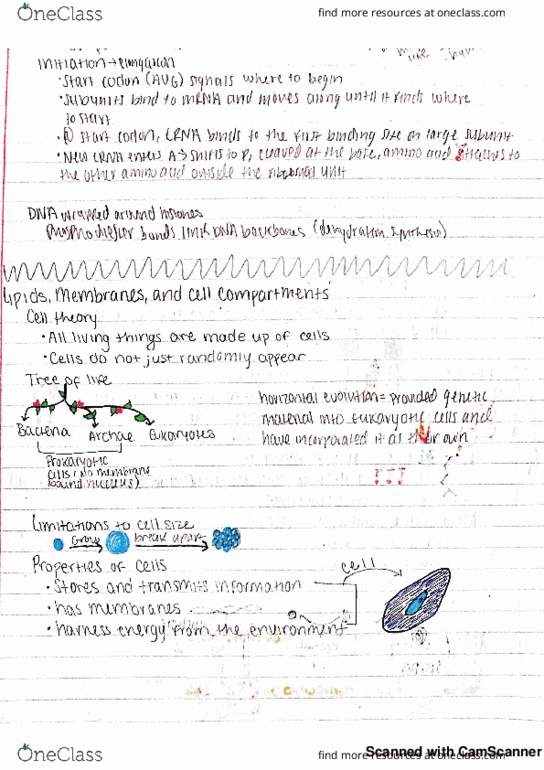 OneClass
find more resources at oneclass.com
Initiation → elongation
• Start codon (AUG) signals where to begin
• Subunits bind to mRNA and moves along until it finds where
to start
• start codon, tRNA binds to the first binding site on large subunit
• New tRNA enters A → shifts to P, cleaved at the base, amino acid attaches to
the other amino acid outside the ribosomal unit
DNA wrapped around histones
Phosphodiester bonds link DNA backbones (dehydration synthesis)
Lipids, Membranes, and cell compartments
Cell theory
• All living things are made up of cells
• Cells do not just randomly appear
Tree of life
Bacteria Archae Eukaryotes
Prokaryotic
cells (no membrane
bound nucleus)
horizontal evolution = provided genetic
material into eukaryotic cells and
have incorporated it as their own
Limitations to cell size
Grow break apart
Properties of cells
• Stores and transmits information
• has membranes
• harness energy from the environment
cell
OneClass
find more resources at oneclass.com
Scanned with CamScanner